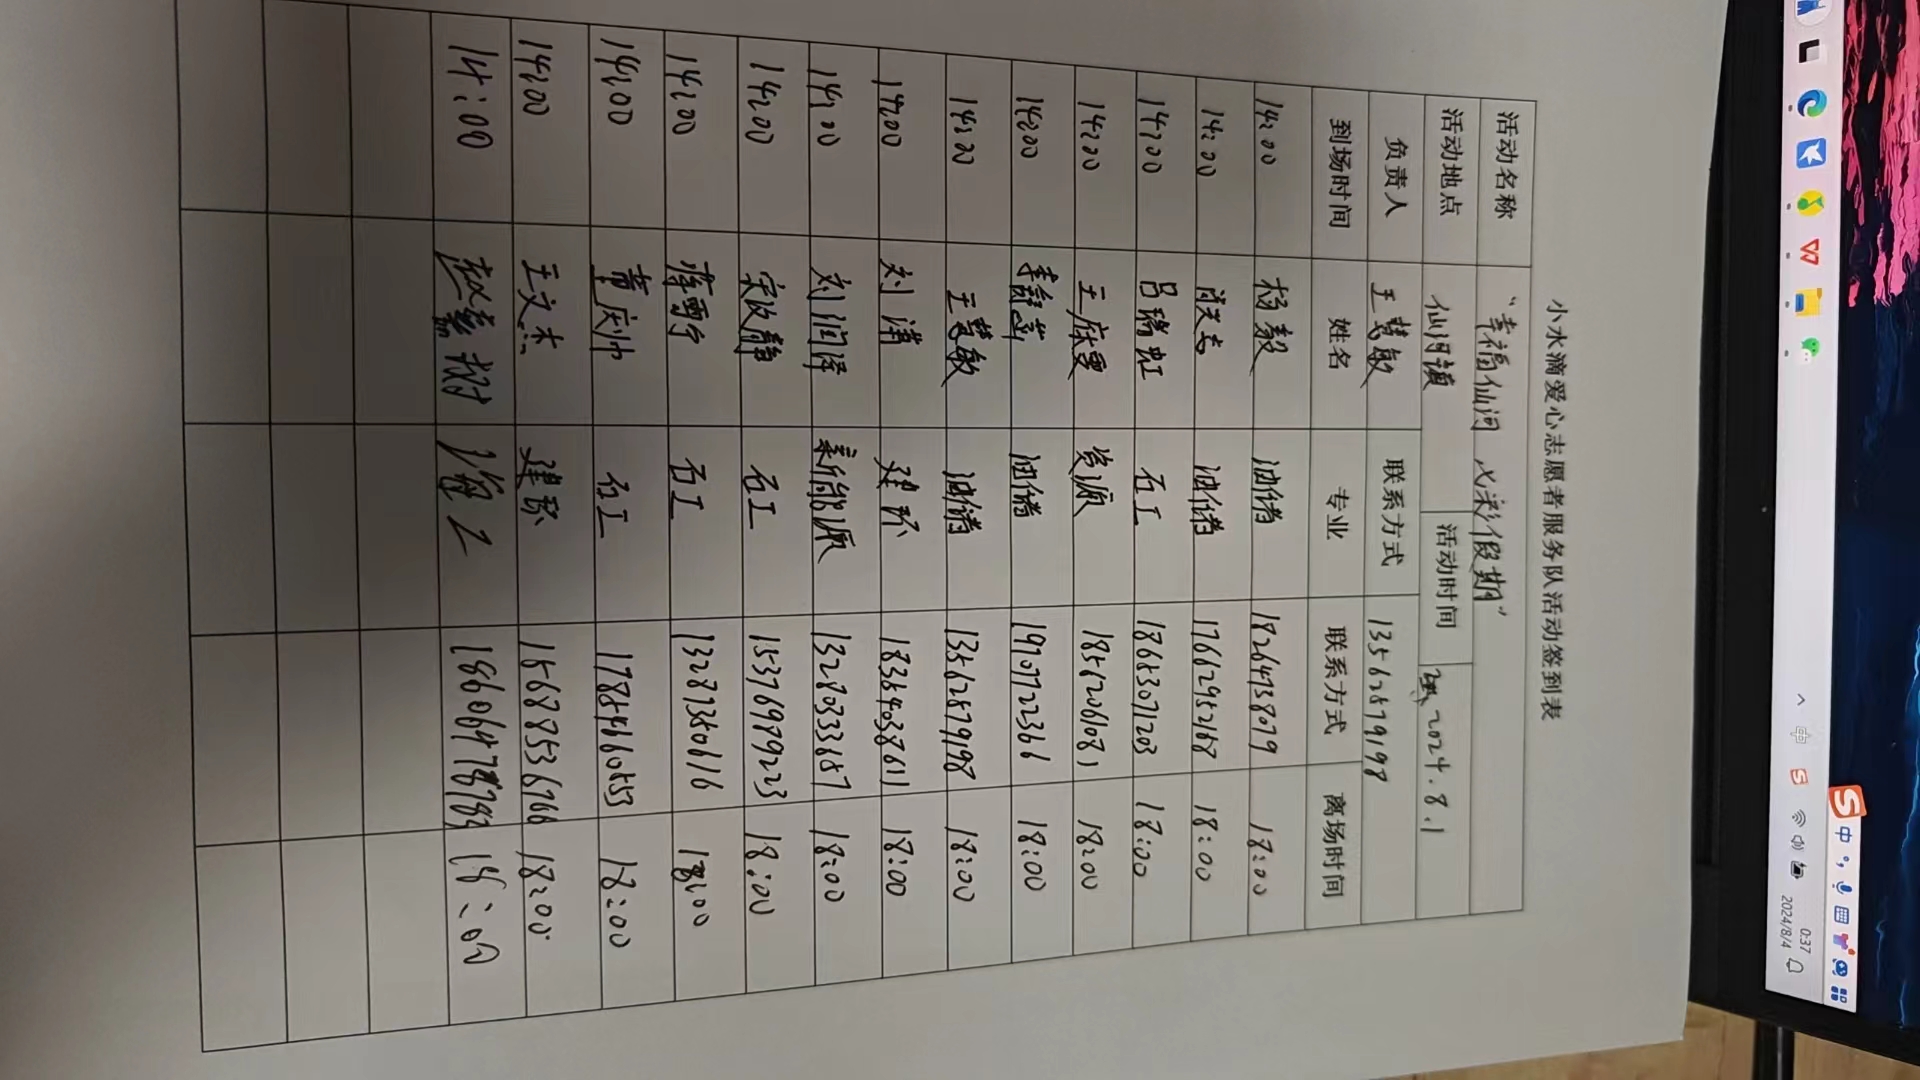 小水滴爱心志愿者服务队活动签到表
活动名称 “幸福仙河 七彩假期”
活动地点 仙河镇 活动时间 2024.8.1
负责人 王慧敏 联系方式 13562879198
到场时间 姓名 专业 联系方式 离场时间
14:00 杨毅 油储 18264738079 18:00
14:00 油储 17662952168 18:00
14:00 吕瑞虹 石工 18653071203 18:00
14:00 资源 18:00
14:00 油储 19107722366 18:00
14:00 王慧敏 油储 13562879198 18:00
14:00 刘洋 建环 18364038611 18:00
14:00 刘润泽 新能源 13280333657 18:00
14:00 宋政静 石工 15376989223 18:00
14:00 蒋雪宁 石工 13287350616 18:00
14:00 石工 17854660553 18:00
14:00 王文杰 建环 15688536766 18:00
14:00 18:00
中
0:37
2024/8/4